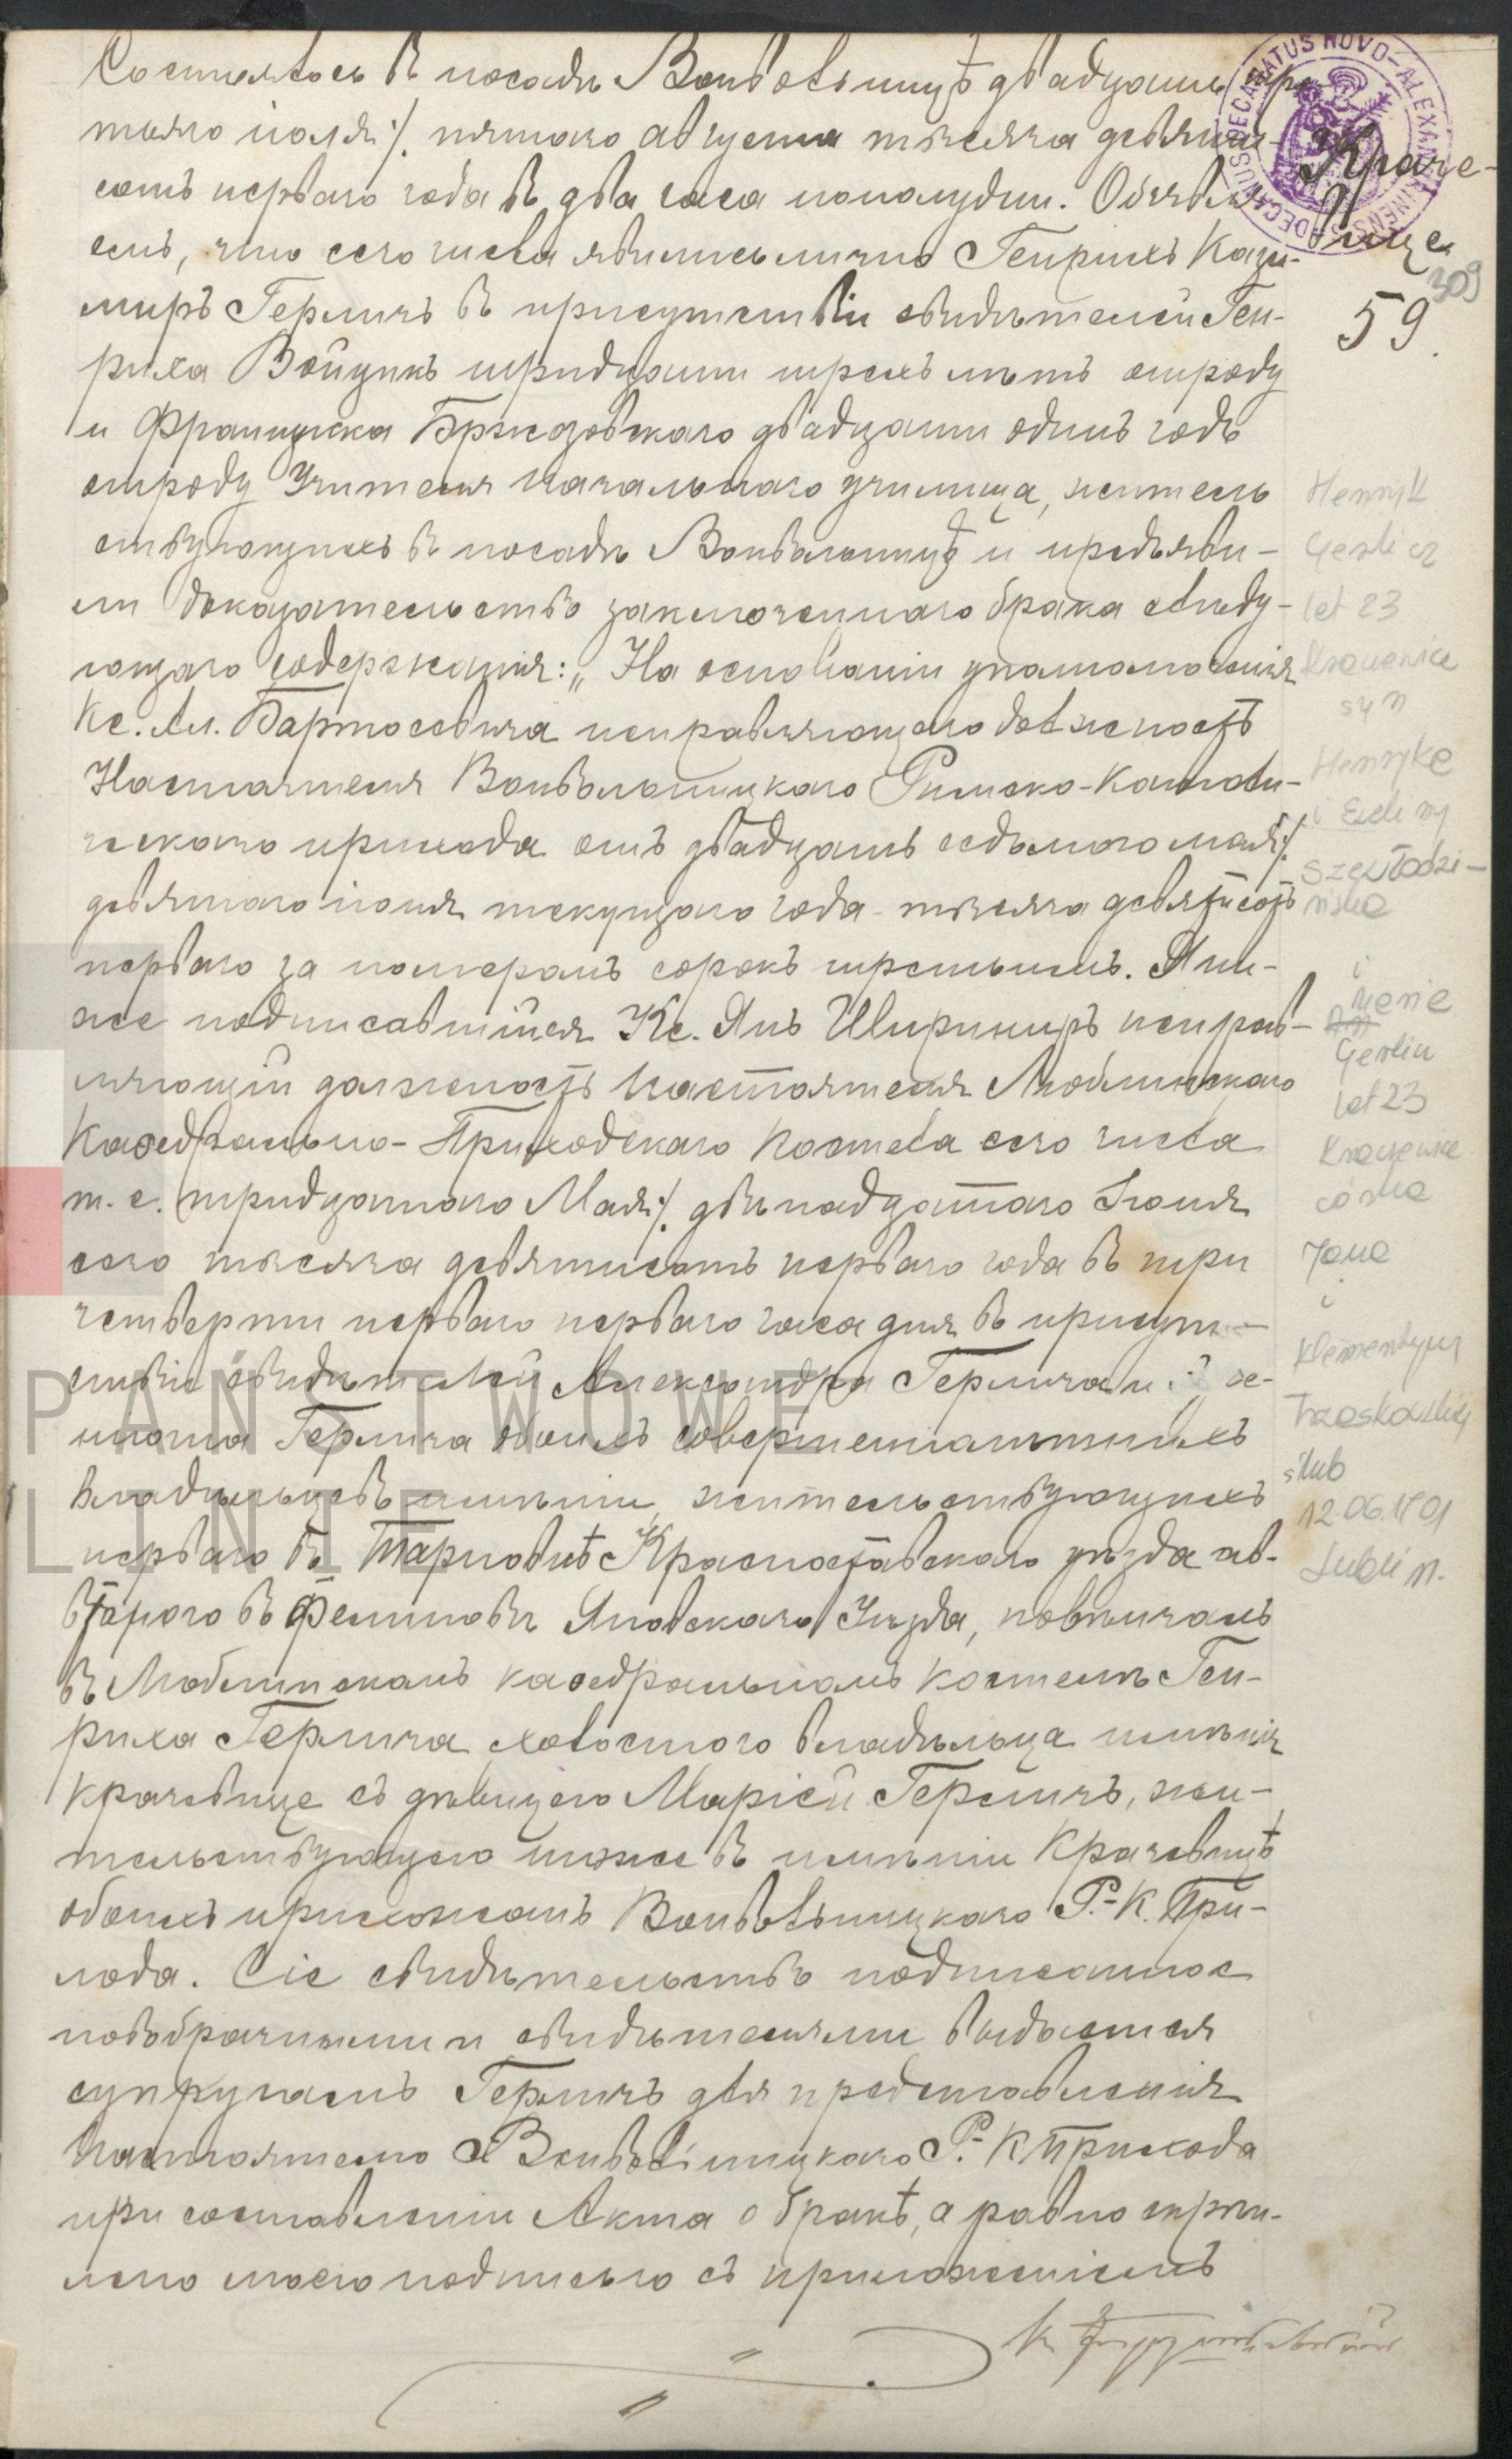 Состоялось въ посадѣ Вонвольницѣ двадцать тре-
тьяго іюля /. пятаго августа тысяча девять-
сотъ перваго года въ два часа пополудни. Объявля-
емъ, что сего числа явились лично Генрихъ Кази-
миръ Герличъ въ присутствіи свидѣтелей Ген-
риха Войцикъ тридцати трехъ лѣтъ отроду
и Францишка Бржозовскаго двадцати одинъ годъ
отроду Учителя начальнаго училища, житель
ствующихъ въ посадѣ Вонвольницѣ и предъяви-
ли доказательство заключеннаго брака слѣду-
ющаго содержанія: „На основаніи уполномоченія
Кс. Ал. Бартосевича исправляющаго должность
Настоятеля Вонвольницкаго Римско-Католи-
ческаго прихода отъ двадцать седьмого мая /.
девятаго іюня текущаго года тысяча девятьсотъ
перваго за номеромъ сорокъ третьимъ. Я ни-
же подписавшійся Кс. Янъ исправ-
ляющій должность Настоятеля Люблинскаго
Каѳедрально-Приходскаго Костела сего числа
т. е. тридцатаго Мая /. двѣнадцатаго Іюня
сего тысяча девятьсотъ перваго года въ три
четверти перваго перваго часа дня въ присут-
ствіе свидѣтелей Александра Герлича и
Герлича обоихъ совершеннолѣтнихъ
владѣльцевъ имѣній, жительствующихъ
перваго въ Тарновкѣ Красноставскаго уѣзда ав-
второго въ Фелиновѣ Яновскаго Уѣзда, повѣнчалъ
въ Люблинскомъ каѳедральномъ костелѣ Ген-
риха Герлича холостого владѣльца имѣнія
Крачевице съ дѣвицею Маріей Герличъ, жи-
тельствующею тоже въ имѣніи Крачевицѣ
обоихъ прихожанъ Вонвольницкаго Р.-К. При-
хода. Сіе свидѣтельство подписанное
новобрачными и свидѣтелями выдается
супругамъ Герличъ для представленія
Настоятелю Вонвольницкаго Р.-К Прихода
при составленіи Акта о бракѣ, а равно скрѣп-
лено моею подписью съ приложеніемъ
Краче-
вице
309
59.
Henryk
Gerlicz
let 23
Kraczewice
syn
Henryka
i Eweliny

i
Maria
Gerlicz
let 23
Kraczewice
córka
Jana
i
Klementyny

ślub
12.06.1901
Lublin.
DECANATUS NOVO-ALEXANDRINENSIS
PAŃSTWOWE
LINIE